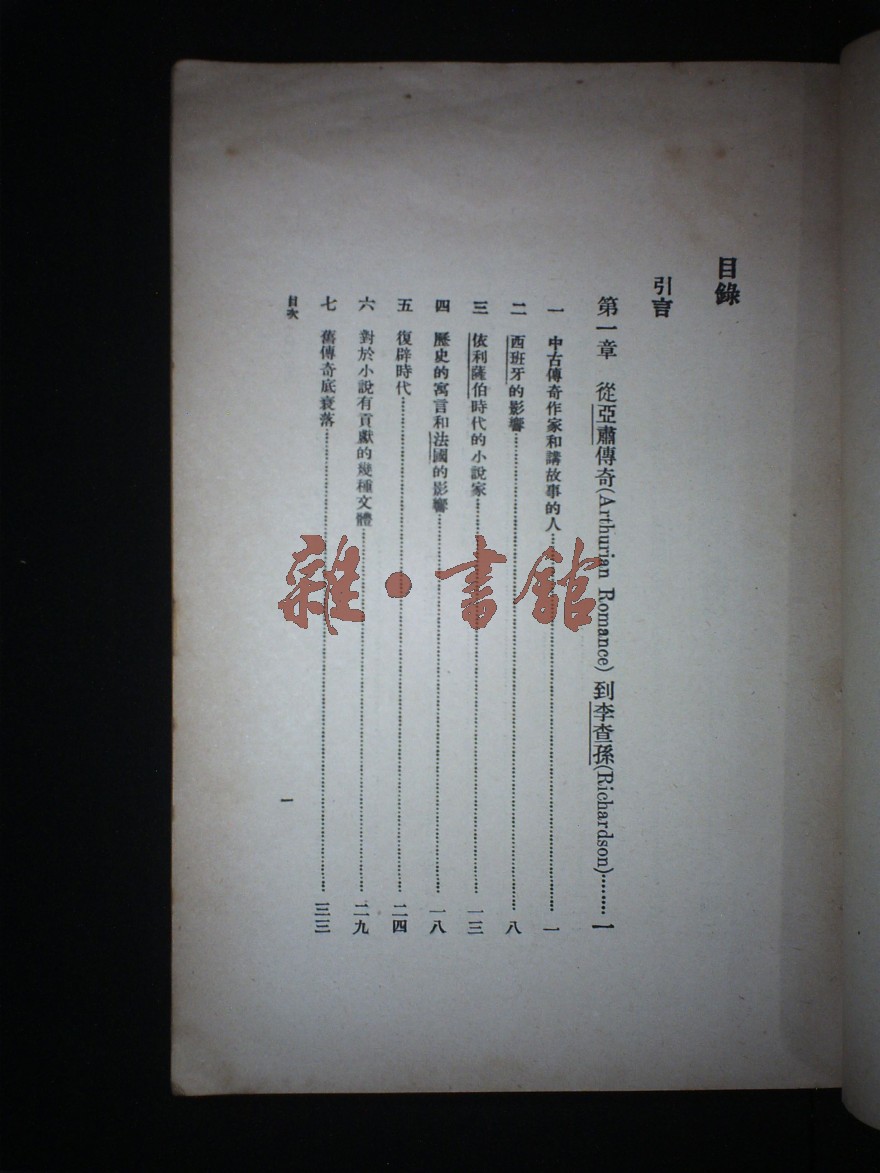 目錄
引言
第一章 從亞肅傳奇(Arthurian Romance)到李查孫(Richardson)………一
一 中古傳奇作家和講故事的人………一
二 西班牙的影響………八
三 依利薩伯時代的小說家………一三
四 歷史的寓言和法國的影響………一八
五 復辟時代………二四
六 對於小說有貢獻的幾種文體………二九
七 舊傳奇底衰落………三三
目次
一
雜·書館